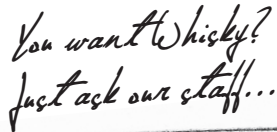 You want Whisky?
Just ask our staff...